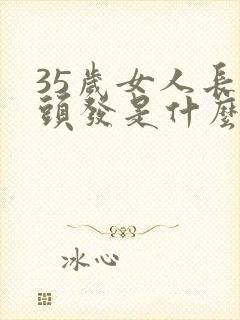 35歲女人長
頭發是什麼
冰心